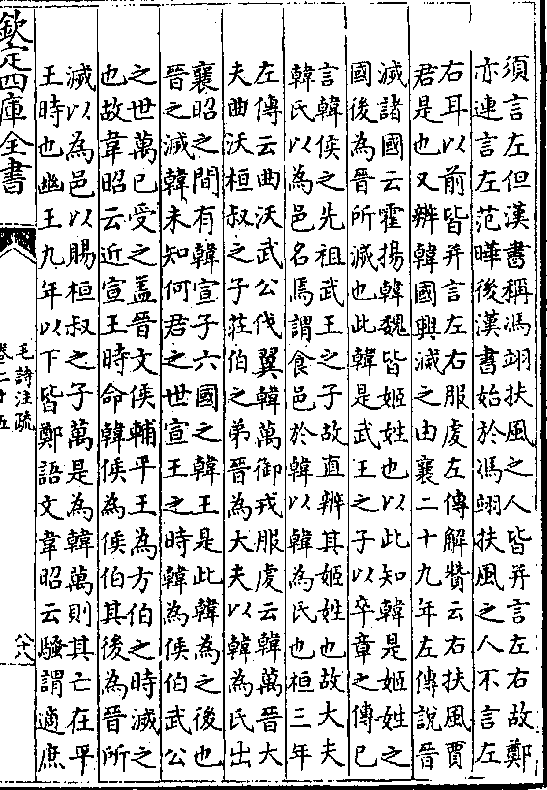 須言左但漢書稱馮翊扶風之人皆并言左右故鄭
亦連言左范曄後漢書始於馮翊扶風之人不言左
右耳以前皆并言左右服虔左傳解贊云右扶風賈
君是也又辨韓國興滅之由襄二十九年左傳說晉
滅諸國云霍揚韓魏皆姬姓也以此知韓是姬姓之
國後為晉所滅也此韓是武王之子以卒章之傳已
言韓侯之先祖武王之子故直辨其姬姓也故大夫
韓氏以為邑名焉謂食邑於韓以韓為氏也桓三年
左傳云曲沃武公伐翼韓萬御戎服虔云韓萬晉大
夫曲沃桓叔之子莊伯之弟晉為大夫以韓為氏出
襄昭之間有韓宣子六國之韓王是此韓為之後也
晉之滅韓未知何君之世宣王之時韓為侯伯武公
之世萬已受之蓋晉文侯輔平王為方伯之時滅之
也故韋昭云近宣王時命韓侯為侯伯其後為晉所
滅以為邑以賜桓叔之子萬是為韓萬則其亡在平
王時也幽王九年以下皆鄭語文韋昭云騷謂適庶
欽定四庫全書
毛詩注疏
卷二十五
八十八